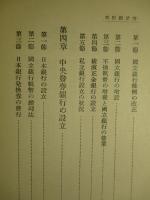 第一節 國立銀行條例の改正
第二節 國立銀行の增設
第三節 不換紙幣の增發と國立銀行の營業
第四節 橫濱正金銀行の設立
第五節 私立銀行設立の狀況
第四章 中央發券銀行の設立
第一節 日本銀行の設立
第二節 國立銀行紙幣の銷却法
第三節 日本銀行兌換券の發行